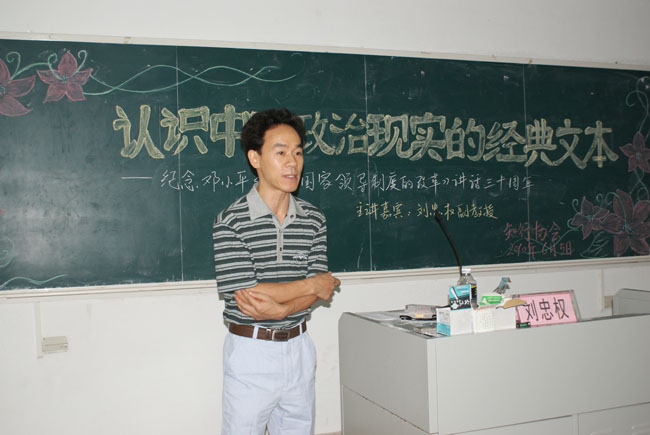 认识中 政治现实的经典文本
——纪念邓小平 国家领导制度的改革》讲话三十周年
主讲嘉宾：刘忠权副教授
知行协会
2010年6月5日
刘忠权